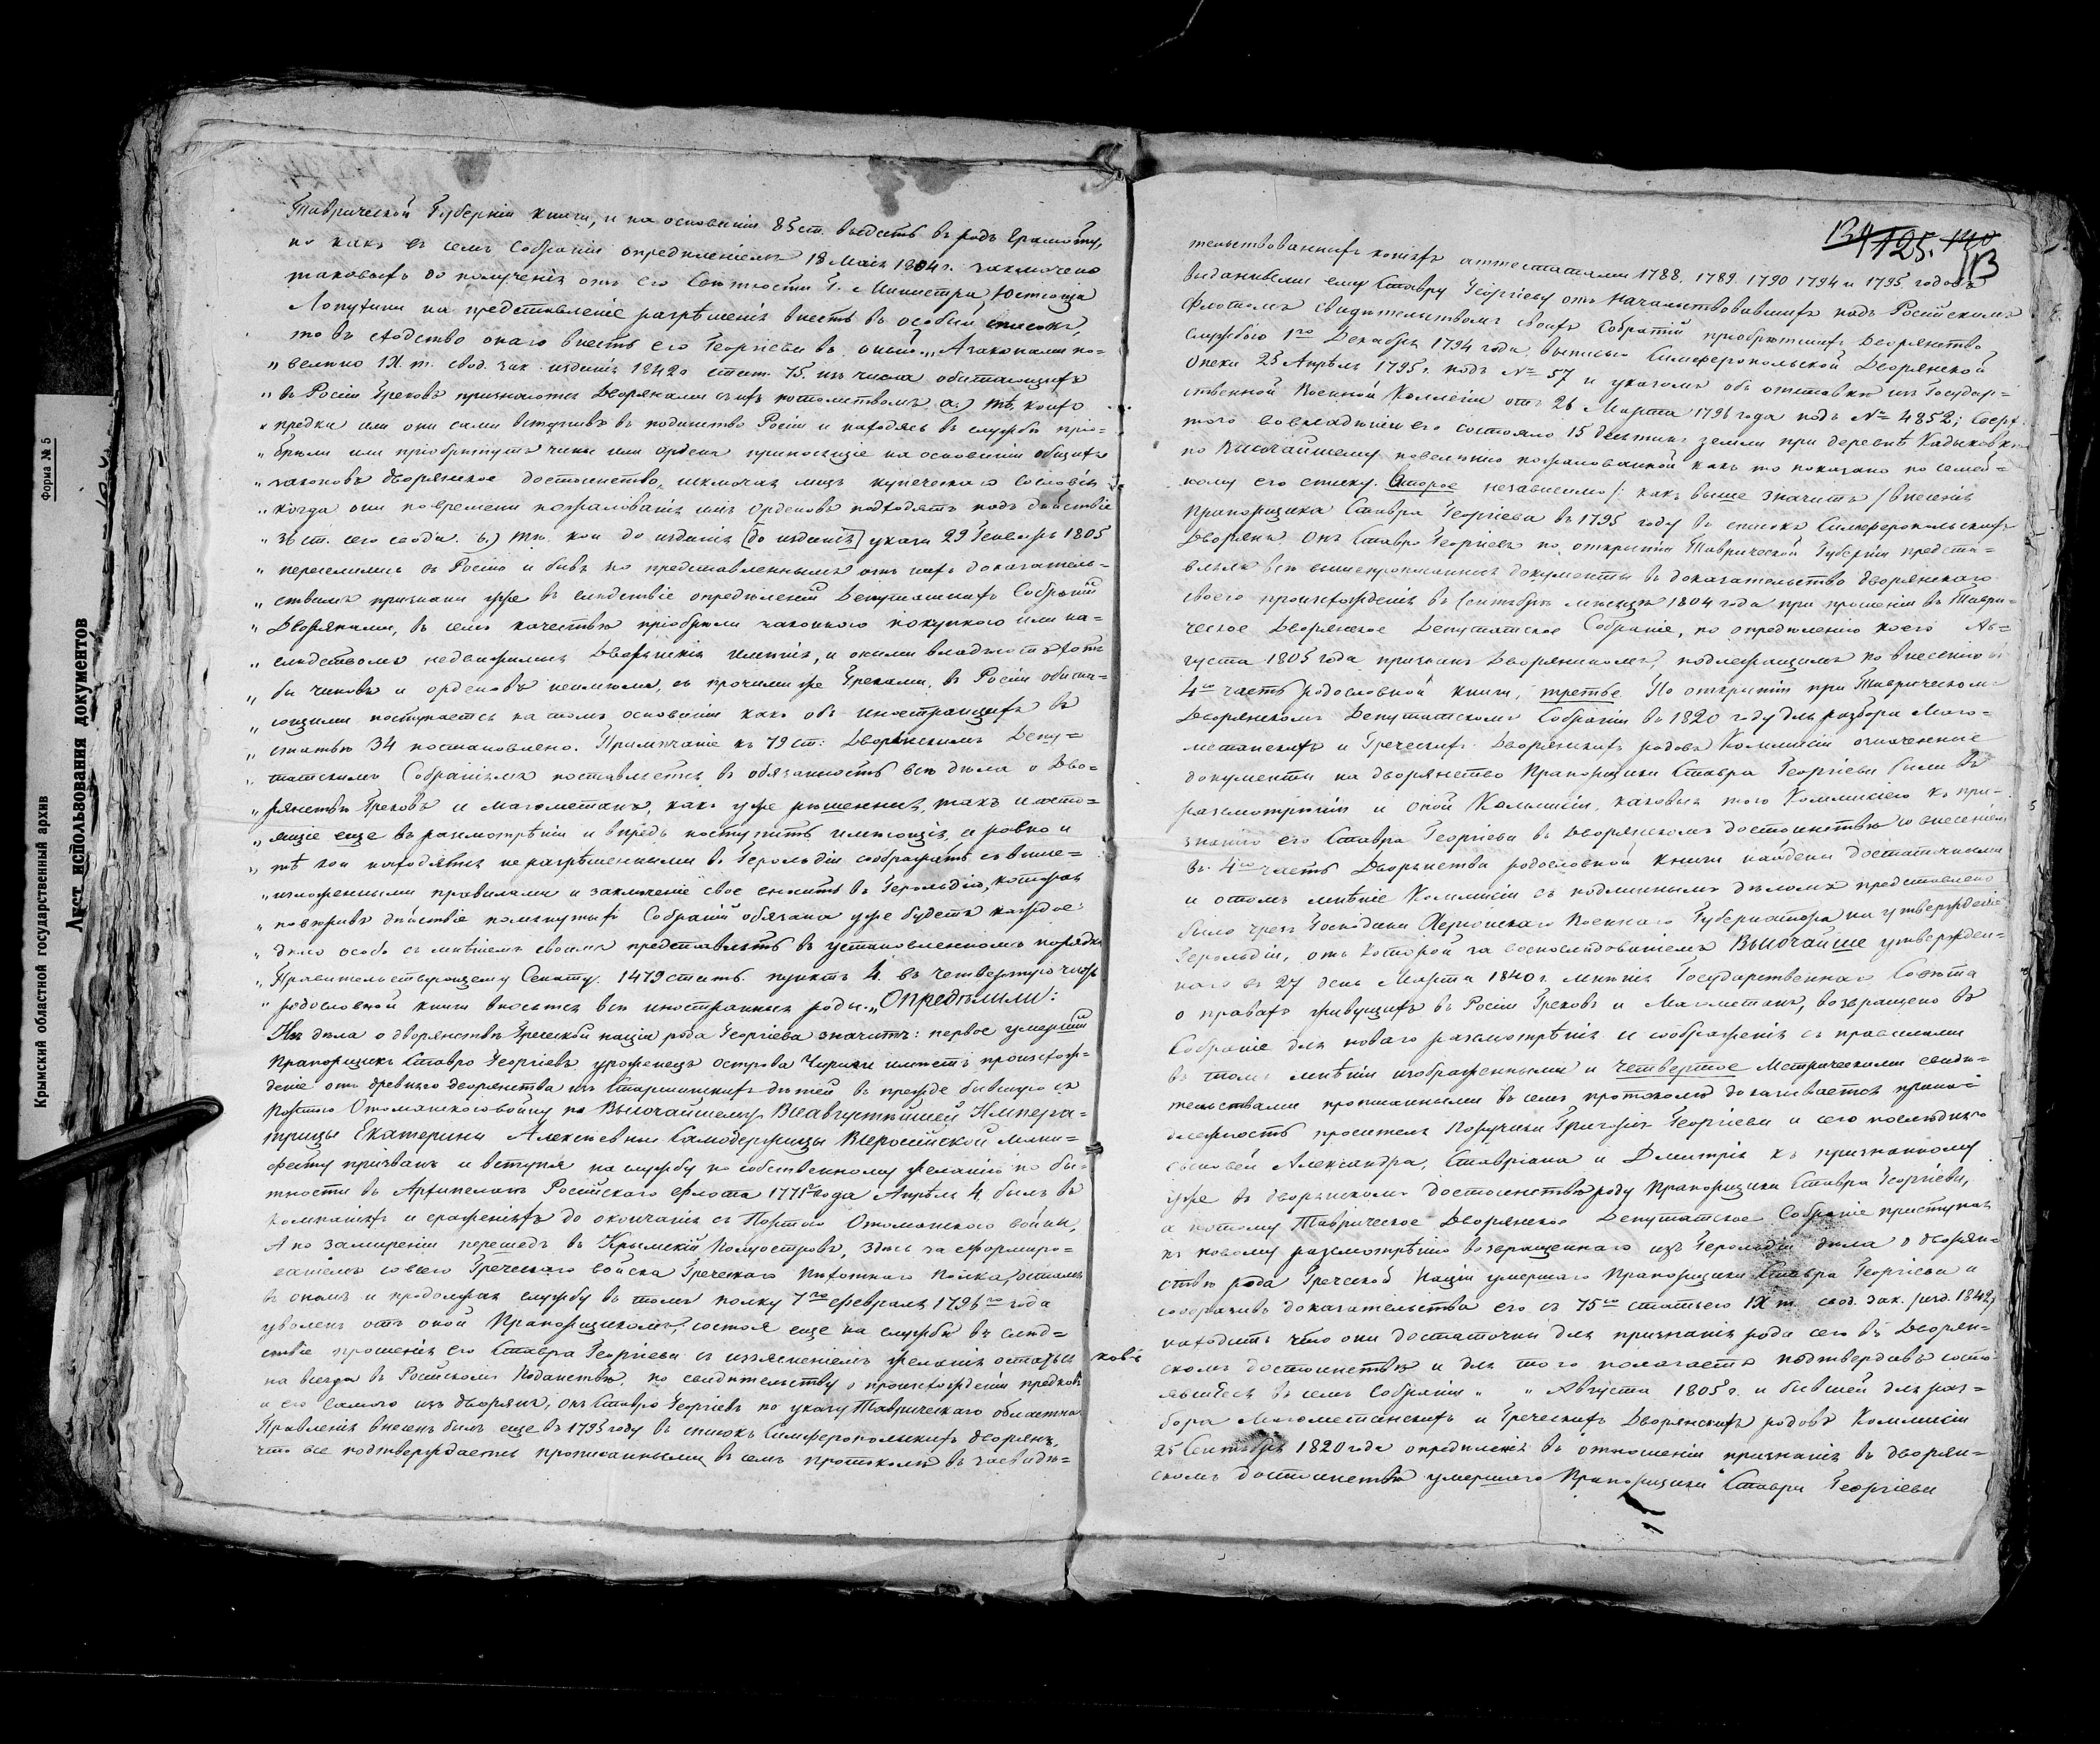 Таврической Губерніи книги, и на основаніи 85 ст. выдать въ родъ Грамоту,
но какъ въ семъ Собраніи опредѣленіемъ 18 Маія 1804 г. заключено
таковыхъ до полученія отъ его Свѣтлости Г. Министра Юстиціи
Лопухина на представленіе разрѣшенія внесть въ особый списокъ,
то въ сходство онаго внесть его Георгіева въ оный„ Азаконами по=
„ велѣно IX т. свод. зак. изданія 1842 г. стат. 75. изъ числа обитающихъ
„ въ Росіи Грековъ признаются Дворянами съ ихъ потомствомъ а.) тѣ, коихъ
„ предки или они сами вступивъ въ подданство Росіи и находясь въ службѣ прі=
„ обрѣли или пріобрѣтутъ чины или ордена приносящіе на основаніи общихъ
„ законовъ дворянское достоинство, исключая лицъ купеческаго сословія
„ когда они по времени пожалованія имъ Орденовъ подходятъ подъ дѣйствіе
„ ст. сего свода. б.) тѣ, кои до изданія [до изданія] указа 29 Генваря 1805
„ переселились въ Росію и бывъ по представленнымъ отъ нихъ доказатель=
„ ствамъ признаны уже въ слѣдствіе опредѣленій Депутатскихъ Собраній
„ Дворянами, въ семъ качествѣ пріобрѣли законною покупкою или на=
„ слѣдствомъ недвижимыя Дворянскія имѣнія, и оными владѣютъ хотя
„ бы чиновъ и орденовъ неимѣли, съ прочими же Греками, въ Росіи обита=
„ ющими поступается на томъ основаніи какъ объ иностранцахъ въ
„ статьѣ 34 постановлено. Примѣчаніе къ 79 ст: Дворянскимъ Депу=
„ татскимъ Собраніямъ поставляется въ обязанность всѣ дѣла о Дво=
„ рянствѣ Грековъ и Магометанъ, какъ уже рѣшенныя, такъ и состо=
„ ящіе еще въ разсмотрѣніи и впредь поступить имѣющія, а ровно и
„ тѣ кои находятся неразрѣшенными въ Герольдіи сообразить съ выше=
„ изложенными правилами и заключеніе свое вносить въ Герольдію, которая
„ повѣривъ дѣйствіе помянутыхъ Собраній обязана уже будетъ каждое
„ дѣло особо съ мнѣніемъ своимъ представлять въ установленномъ порядкѣ
„ Правительствующему Сенату. 1479 статьѣ пунктъ 4. въ четвертую часть
„ родословной книги вносятся всѣ иностранныя роды.„ Опредѣлили:
Изъ дѣла о дворянствѣ Греческой націи рода Георгіева значитъ: первое умершій
Прапорщикъ Ставро Георгіевъ уроженецъ острова имѣетъ происхож=
деніе отъ древняго дворянства изъ Старшинскихъ дѣтей въ прежде бывшую съ
Портою Отоманскою войну по Высочайшему, Всеавгустѣйшей Импера=
трицы Екатерины Алексѣевны Самодержицы Всеросійской мани=
фесту призванъ и вступя на службу по собственному желанію по бы=
тности въ Архипелагѣ Россійскаго флота 1771 года Апрѣля 4 былъ въ
компаніяхъ и сраженіяхъ до окончанія съ Портою Отоманскою войны,
А по замиреніи перешедъ въ Крымскій Полуостровъ, здѣсь за сформиро=
ваніемъ со всего Греческаго войска Греческаго Пѣхотнаго Полка, остался
въ ономъ и продолжая службу въ томъ полку 7го февраля 1796го года
уволенъ отъ оной Прапорщикомъ, состоя еще на службѣ въ слѣд=
ствіе прошенія его Ставра Георгіева съ изъясненіемъ желанія остаться
на всегда въ Російскомъ Подданствѣ, по свидѣтельству о происхожденіи предковъ
и его самого изъ дворянъ, онъ Ставро Георгіевъ по указу Таврическаго областнаго
Правленія внесенъ былъ еще въ 1795 году въ списокъ Симферопольскихъ дворянъ,
что все подтверждается прописанными въ семъ протоколѣ въ засвидѣ=
125.
113
тельствованныхъ копіяхъ аттестатами 1788. 1789. 1790 1794 и 1795 годовъ
выданными ему Ставру Георгіеву отъ начальствовавшихъ надъ Російскимъ
флотомъ свидѣтельствомъ своихъ Собратій пріобрѣтшихъ Дворянство
службою 1го Декабря 1794 года, выписью Симферопольской Дворянской
Опеки 25 Апрѣля 1795 г. подъ № 57 и указомъ объ отставкѣ изъ Государ=
ственной Военной Коллегіи отъ 26 Марта 1796 года подъ № 4852; Сверх
того во владѣніи его состояло 15 десятинъ земли при деревнѣ Кадыковкѣ
по Высочайшему повелѣнію пожалованной какъ то показано по семей=
ному его списку. Второе независимо /: какъ выше значитъ / внесенія
Прапорщика Ставра Георгіева въ 1795 году въ списокъ Симферопольскихъ
Дворянъ. Онъ Ставро Георгіевъ по открытіи Таврической Губерніи предста=
влялъ всѣ вышепрописанныя документы въ доказательство дворянскаго
своего происхожденія въ Сентябрѣ мѣсяцѣ 1804 года при прошеніи въ Таври=
ческое Дворянское Депутатское Собраніе, по опредѣленію коего Ав=
густа 1805 года признанъ Дворяниномъ, подлежащимъ ко внесенію въ
4ю часть родословной книги, третье. По открытіи при Таврическомъ
Дворянскомъ Депутатскомъ Собраніи въ 1820 году для разбора Маго=
метанскихъ и Греческихъ Дворянскихъ родовъ Коммисіи означенные
документы на дворянство Прапорщика Ставра Георгіева были въ
разсмотрѣніи и оной Коммисіи, каковыя тою Коммисіею къ при=
знанію его Ставра Георгіева въ Дворянскомъ достоинствѣ со внесеніемъ
въ 4ю часть Дворянства родословной книги найдены достаточными
и отомъ мнѣніе Коммисіи съ подлиннымъ дѣломъ представлено
было чрезъ Господина Херсонскаго Военнаго Губернатора на утвержденіе
Герольдіи, отъ которой за воспослѣдованіемъ Высочайше утвержден=
наго въ 27 день Марта 1840 г. мнѣнія Государственнаго Совѣта
о правахъ живущихъ въ Росіи Грековъ и Магометанъ, возвращено въ
Собраніе для новаго разсмотрѣнія и соображенія съ правилами
въ томъ мнѣніи изображенными и четвертое Метрическими свидѣ=
тельствами прописанными въ семъ протоколѣ доказывается принад=
лежность просителя Поручика Григорія Георгіева и сего послѣдняго
сыновей Александра, Ставріана и Дмитрія къ признанному
уже въ дворянскомъ достоинствѣ роду Прапорщика Ставра Георгіева,
а потому Таврическое Дворянское Депутатское Собраніе приступая
къ новому разсмотрѣнію возвращеннаго изъ Герольдіи дѣла о дворян=
ствѣ рода Греческой Націи умершаго Прапорщика Ставра Георгіева и
сообразивъ доказательства его съ 75ю статьею IX т. свод. зак. /изд. 1842/
находитъ что они достаточны для признанія рода сего въ Дворян=
скомъ достоинствѣ и для того полагаетъ подтвердивъ состо=
явшіеся въ семъ Собраніи „ „ Августа 1805 г. и бывшей для раз=
бора Магометанскихъ и Греческихъ Дворянскихъ родовъ Коммисіи
25 Сентября 1820 года опредѣленія въ отношеніи признанія въ дворян=
скомъ достоинствѣ умершаго Прапорщика Ставра Георгіева
Форма № 5
Крымский областной государственный архив
Лист использования документов